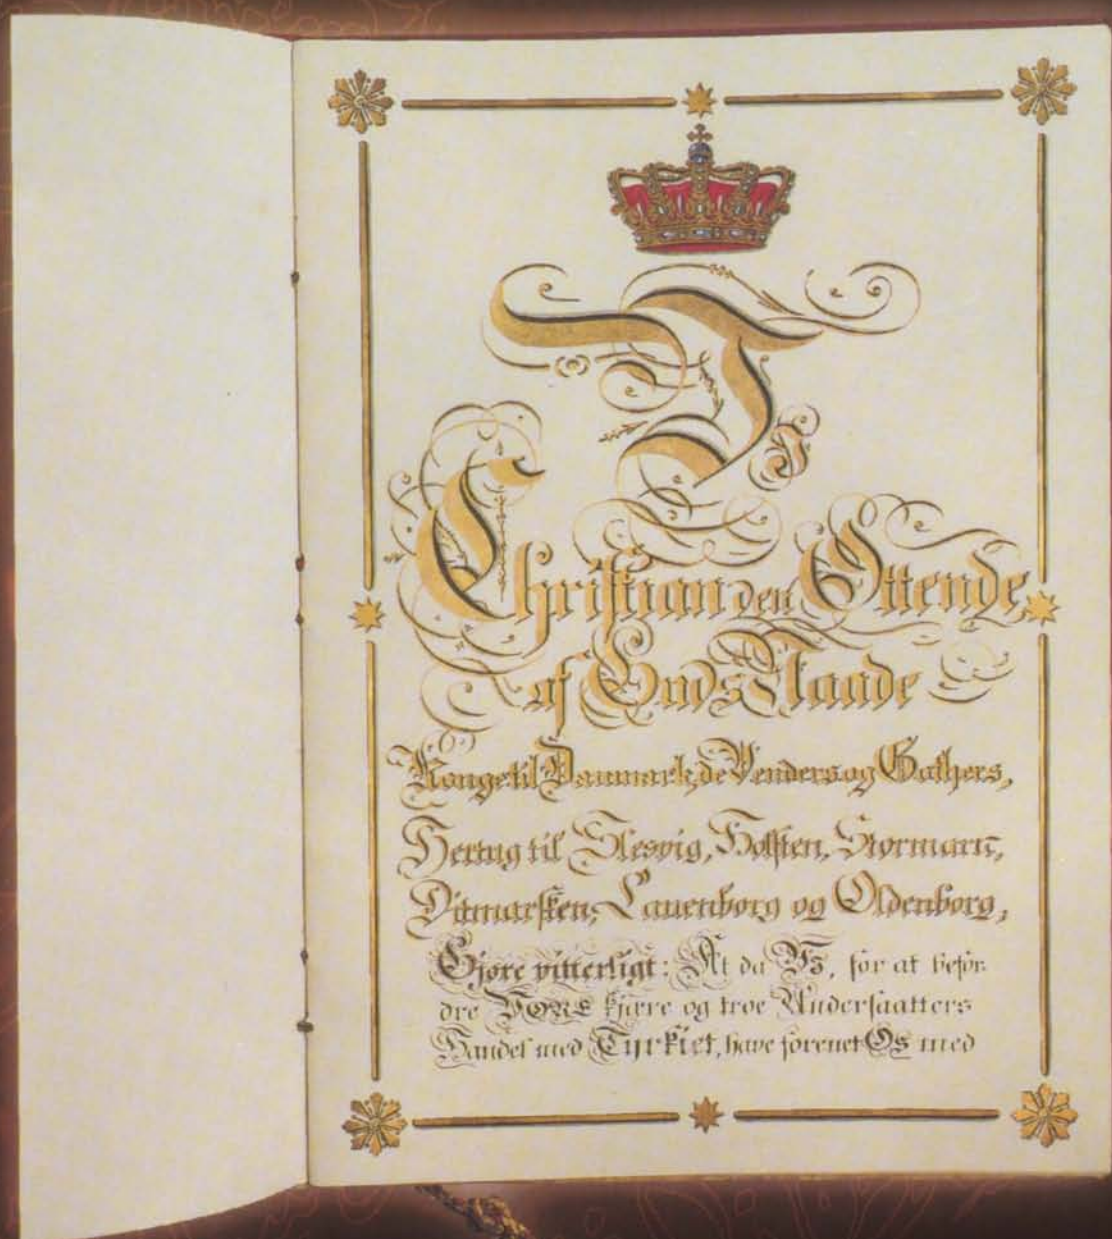 Vi
Christian den Ottende
af Guds Naade
Konge til Danmark, de Venders og Gothers,
Hertug til Slesvig, Holsten, Stormarn,
Ditmarsken, Lauenborg og Oldenborg,
Gjøre vitterligt: At da Vi, for at befor-
dre VORE kjære og troe Undersaatters
Handel med Tyrkiet, have forenet Os med